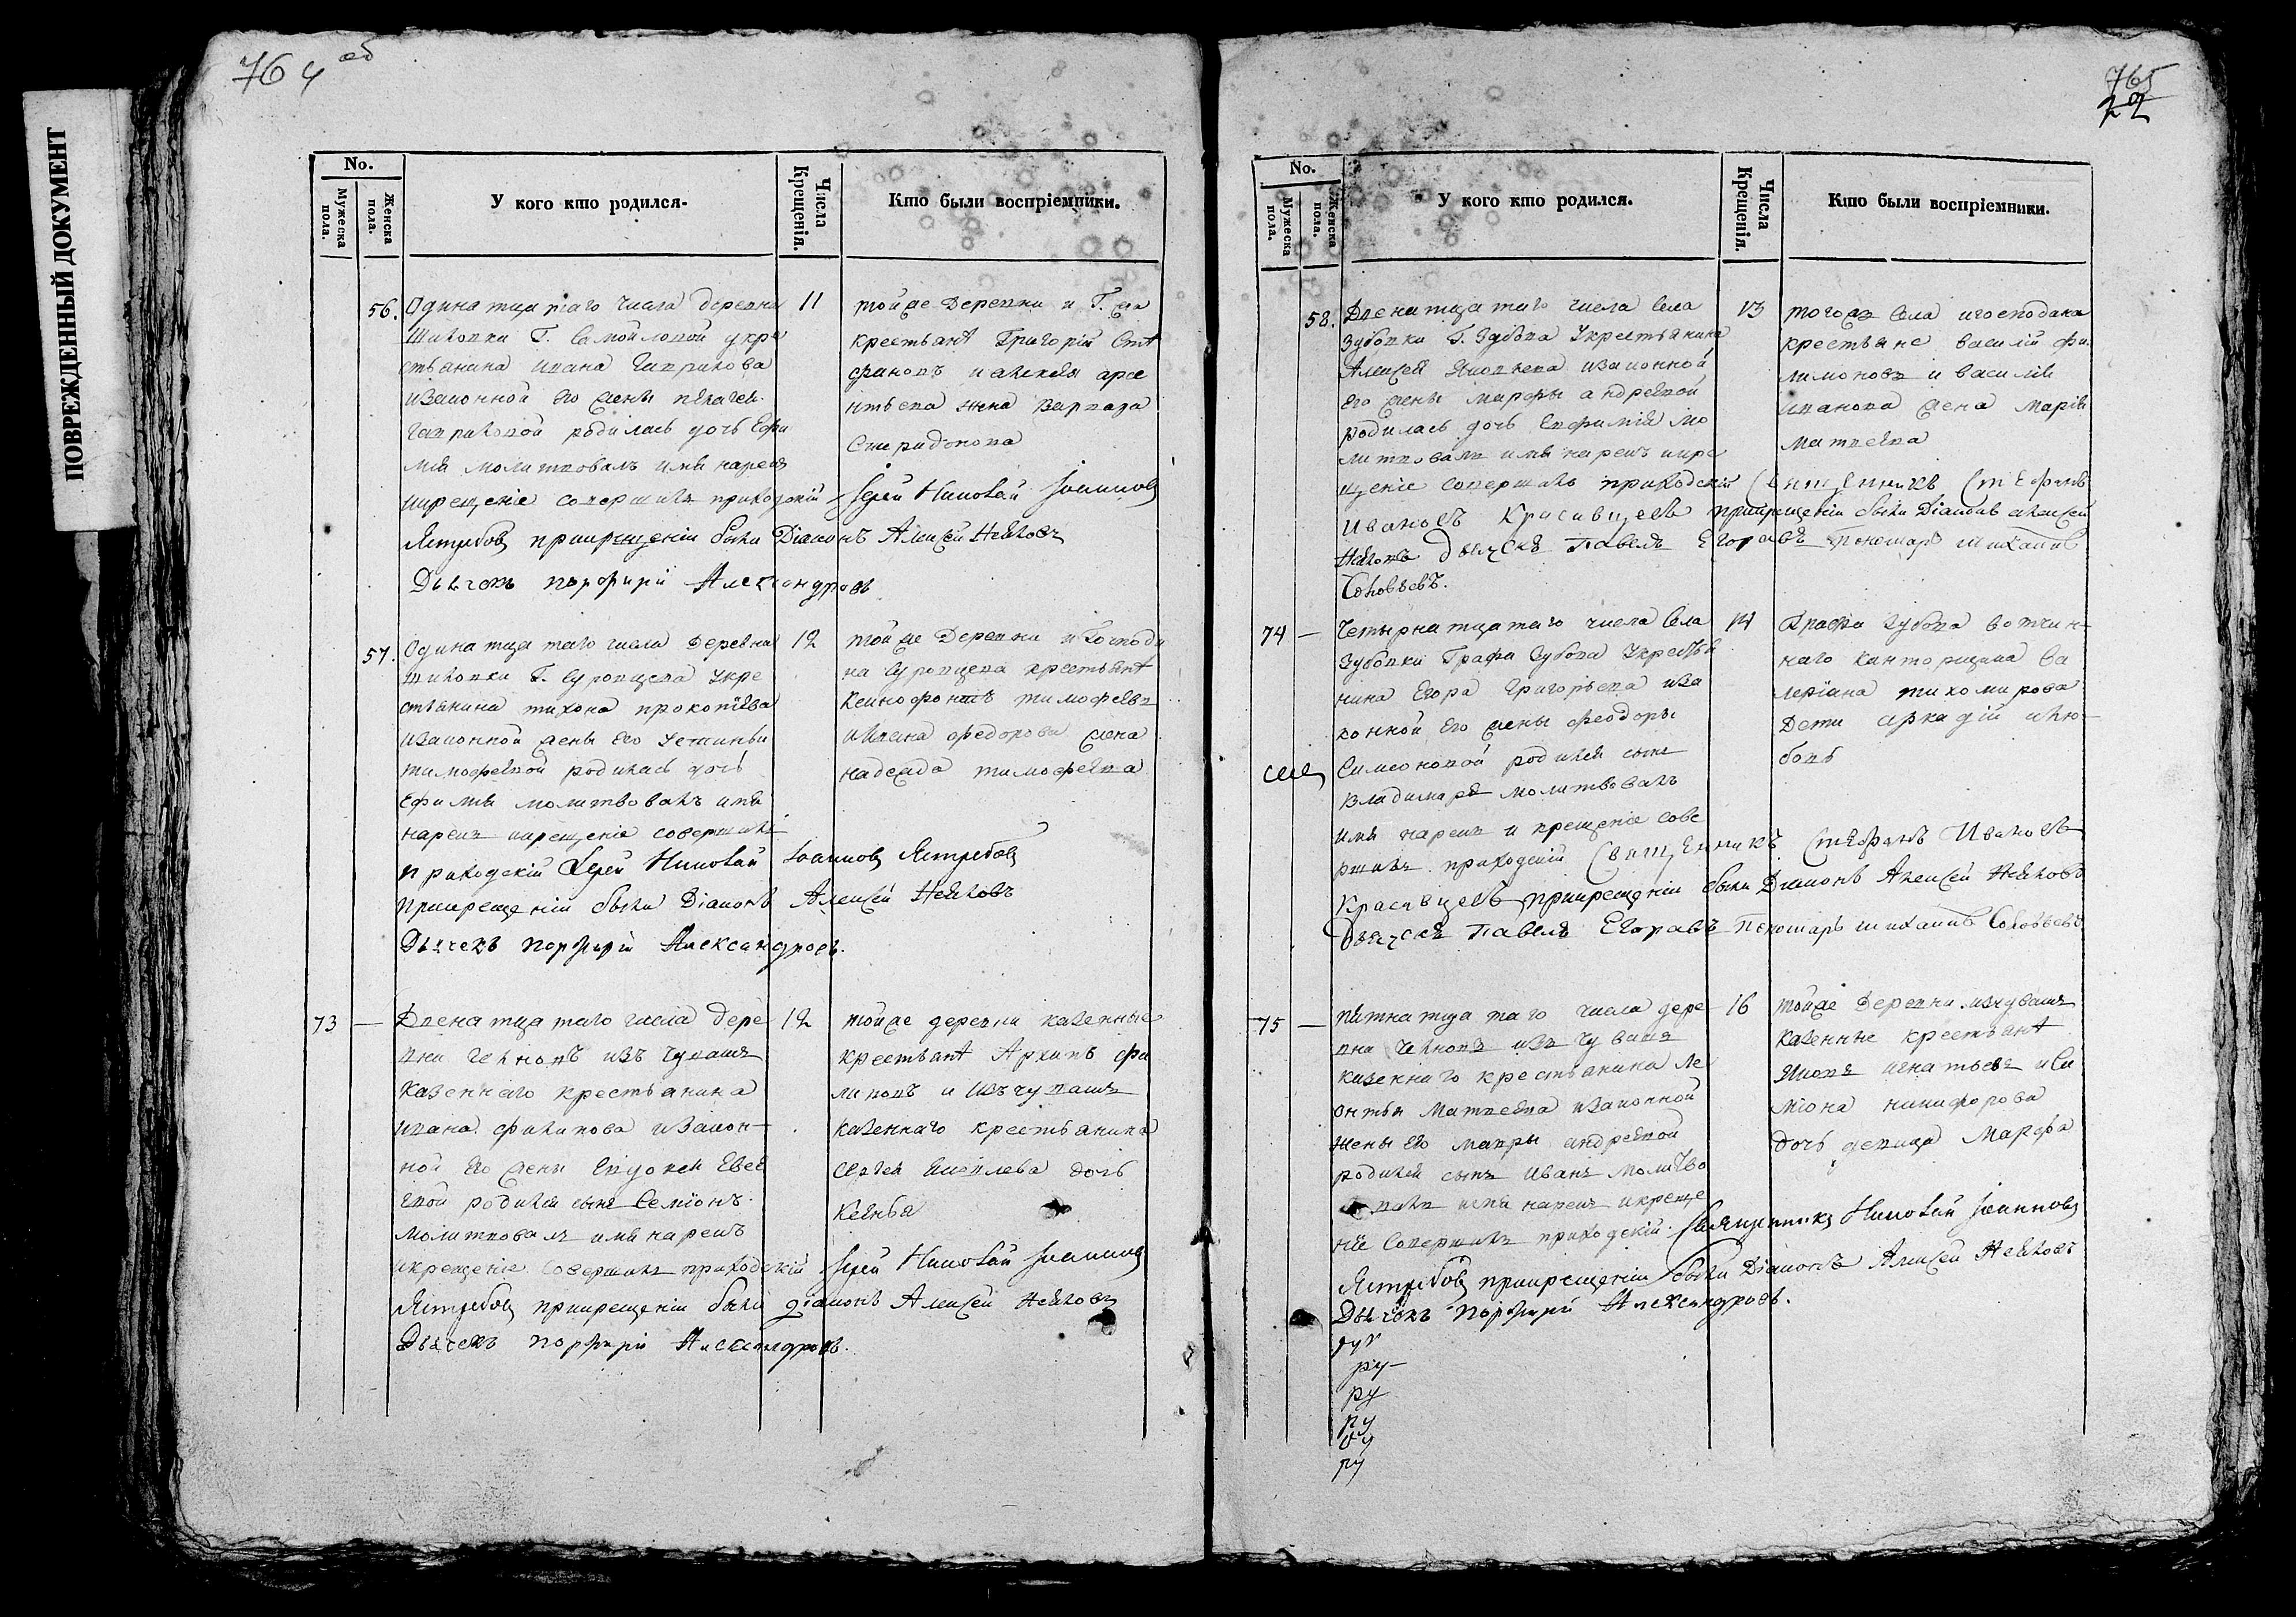 ПОВРЕЖДЕННЫЙ ДОКУМЕНТ
764 об
No.
Мужеска пола.
Женска пола.
У кого кто родился.
Числа Крещенія.
Кто были воспріемники.
56. Одинатцатаго числа деревни 11
Г. Самойловой укре
стьянина Ивана Гаврилова
изаконной его жены
Гавриловой родилась дочь Ефи
мія молитвовалъ имя нареч
икрещеніе совершилъ приходскій Іерей Николай Іоанновъ
Ястребовъ прикрещеніи были Діаконъ Алексей
Дьячекъ Порфирій Александровъ
тойже деревни и Г. ея
крестьяне Григорій Сте
фановъ и Алексея арсе
нтьева жена Варвара
Спиридонова
57. Одинатцатаго числа деревни 12
Г. Суровцева укре
стьянина тихона прокопіева
изаконной жены его Устиньи
тимофеевой родилась дочь
Ефимія молитвовалъ имя
нареч икрещеніе совершилъ
приходскій Іерей Николай Іоанновъ Ястребовъ
прикрещеніи были Діаконъ Алексей
Дьячекъ Порфирій Александровъ.
тойже деревни игосподи
на Суровцева крестьяне
Ксенофонтъ тимофеевъ
федорова жена
надежда тимофеева
73 — Двенатцатаго числа дере 12
вни изъ чувашъ
казеннаго крестьянина
ивана филипова изакон-
ной его жены Евдокеи Евсе
евой родился сынъ Семіонъ
молитвовалъ имя нареч
икрещеніе совершилъ приходскій Іерей Николай Іоанновъ
Ястребовъ прикрещеніи были діаконъ Алексей
Дьячекъ Порфирій Александровъ.
тойже деревни казенные
крестьяне Архипъ фи
липовъ и изъ чувашъ
казеннаго крестьянина
Сергея дочь
765
22
No.
Мужеска пола.
Женска пола.
У кого кто родился.
Числа Крещенія.
Кто были воспріемники.
58. Двенатцатаго числа Села 13
Зубовки Г. Зубова укрестьянина
Алексея Яковлева изаконной
его жены марфы андреевой
родилась дочь Евфимія мо
литвовалъ имя нареч икре
щеніе совершилъ приходскій Священникъ Стефанъ
Ивановъ Красавцевъ прикрещеніи были Діаконъ алексей
дьячекъ Павелъ Егоравъ пономарь михаилъ
Соловьевъ.
тогожъ Села игосподина
крестьяне василій фи
лимоновъ и василія
иванова жена Марія
матвеева
74 — Четырнатцатаго числа Села 14
Зубовки Графа Зубова укрестья
нина Егора Григорьева иза
конной его жены феодоры
Симеоновой родился сынъ
Владимиръ молитвовалъ
имя нареч и крещеніе сове
ршилъ приходскій Священникъ Стефанъ Ивановъ
Красавцевъ прикрещеніи были Діаконъ Алексей
дьячекъ Павелъ Егоравъ Пономарь михаилъ Соловьевъ
Графа Зубова вотчин-
наго канторщика Ва
леріана тихомирова
дети аркадій илю-
бовь
75 — пятнатцатаго числа дере 16
вни изъ чувашъ
казеннаго крестьянина Ле
онтья Матвеева изаконной
жены его мавры андреевой
родился сынъ Иванъ молитво
валъ имя нареч икреще
ніе совершилъ приходскій Священникъ Николай Іоанновъ
Ястребовъ прикрещеніи были Діаконъ Алексей
Дьячекъ Порфирій Александровъ.
тойже деревни изчувашъ
казенные крестьяне
Яковъ игнатьевъ иСи
міона никифорова
дочь девица Марфа
ру
ру
ру
ру